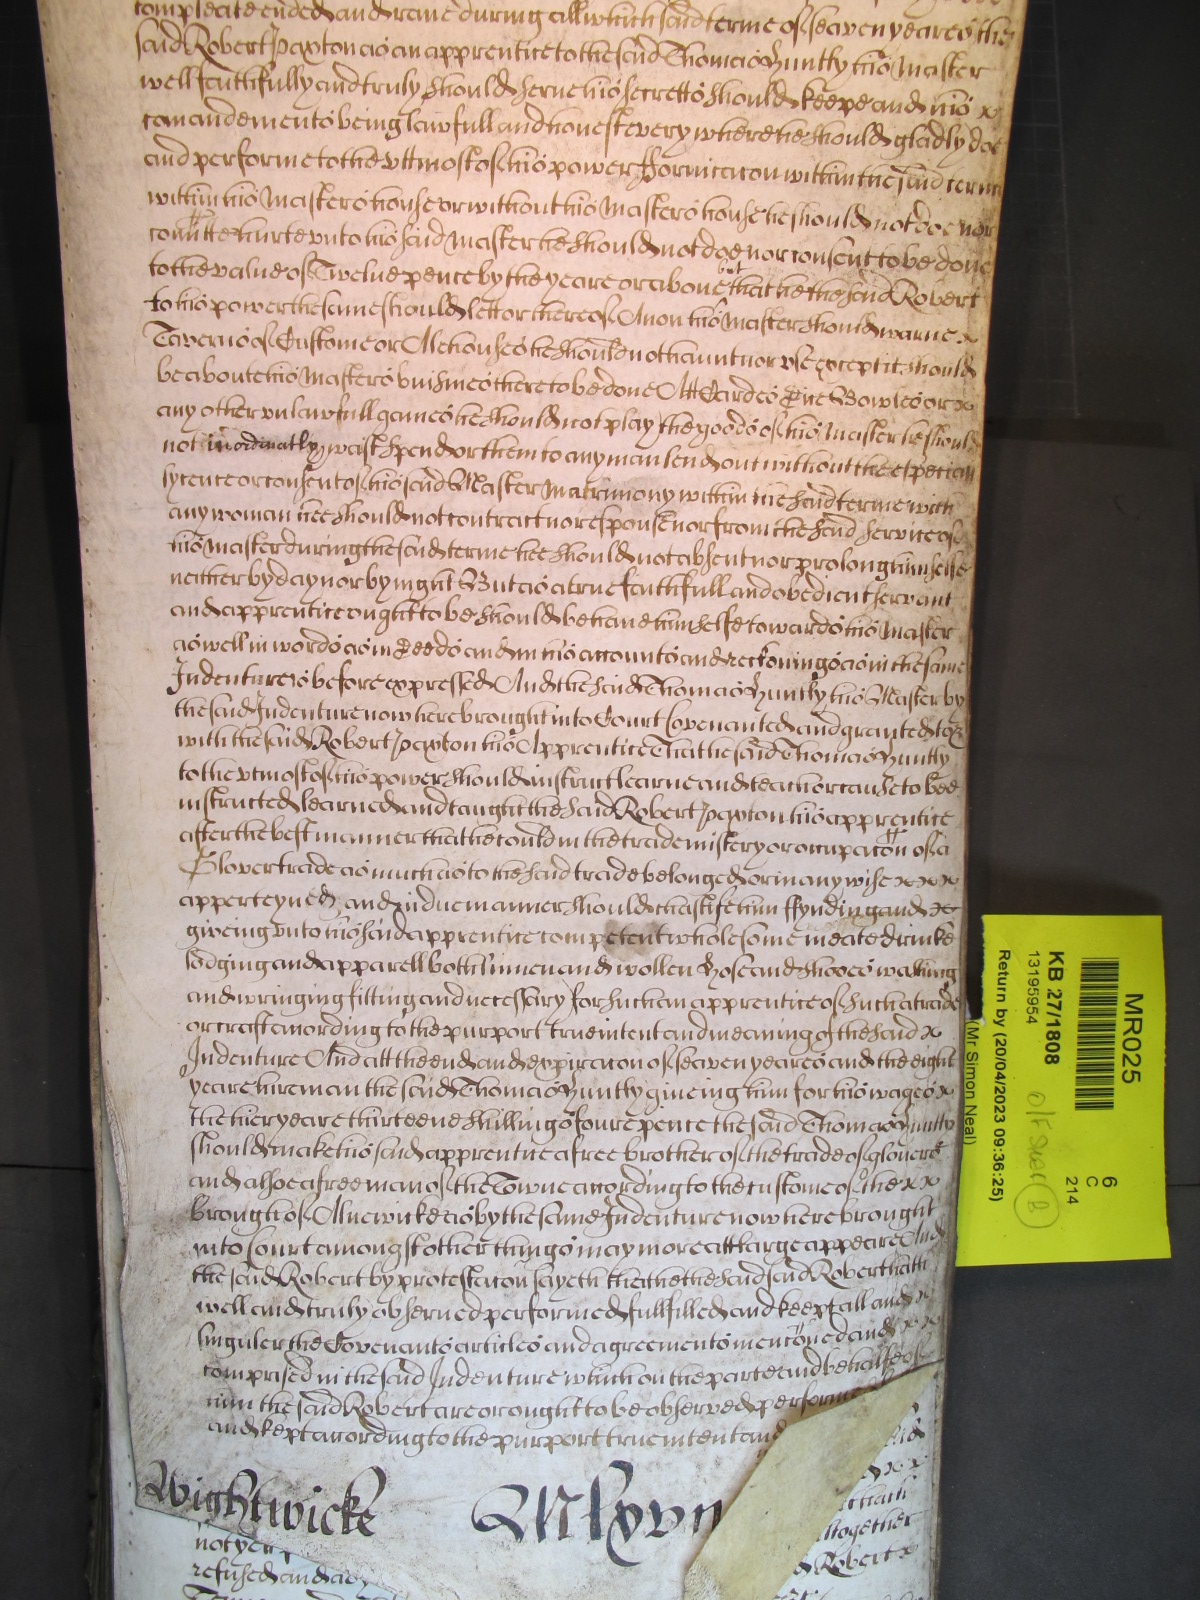 compleate ended and runne during all which said terme of seaven yeares the
said Robert Paxton as an apprentice to the said Thomas Huntly his Master
well faithfully and truly should serve his secretts should keepe and his x
comandements being lawfull and honest every where he should gladly doe
and performe to the uttmost of his power ffornicacon within the said terme
within his Masters house or without his Masters house he should not doe nor
comitte hurte unto his said Master he should not doe nor consent to be done
to the value of Twelve pence by the yeare or above but that he the said Robert
to his power the same should lett or thereof Anon his Master should warne x
Taverns of Custome or Alehouses he should not haunt nor use except it should
be aboute his Masters buisines there to be done Att Cardes Dice Bowles or x
any other unlawfull games he should not play the goods of his Master he should
not inordinatly wast spend or them to any man lend out without the especiall
lycence or consent of his said Master Matrimony within the said terme with
any woman hee should not contract nor espouse nor from the said service of
his Master during the said terme hee should not absent nor prolong himselfe
neither by day nor by night But as a true faithfull and obedient servant
and apprentice ought to be should behave himselfe towards his Master
as well in words as in Deeds and in his accounts and reckonings as in the same
Indenture is before expressed And the said Thomas Huntly his Master by
the said Indenture now here brought into Court Covenanted and granted to &
with the said Robert Paxton his Apprentice That he the said Thomas Huntly
to the utmost of his power should instruct learne and teach or cause to bee
instructed learned and taught the said Robert Paxton his apprentice
after the best manner that he could in the trade mistery or occupacon of a
Glover trade as much as to the said trade belonged or in any wise x x x
apperteyned and in due manner should chastise him ffynding and x
giveing unto his said apprentice competent wholesome meate drinke
lodging and apparell both linnen and wollen hose and shooes washing
and wringing fitting and necessary for such an apprentice of such a trade
or craft according to the purport true intent and meaning of the said x
Indenture And att the end and expiracon of seaven yeares and the eight
yeare hireman the said Thomas Huntly giveing him for his wages x
the hier yeare thirteene shillings foure pence the said Thomas Huntly
should make his said apprentice a free brother of the trade of glovers
and alsoe a free man of the Towne according to the custome of the x x
Brough of Alnewicke as by the same Indenture now here brought
into Court amongst other things may more att large appeare And
the said Robert by protestacon sayeth that he the said said Robert hath
well and truly observed performed fullfilled and keept all and x
singuler the Covenants articles and agreements menconed and x x
comprised in the said Indenture which on the parte and behalfe of
him the said Robert are or ought to be observed performed
and kept according to the purport true intent and
Wightwicke Mlxvn
not yer
refused and
altogether
Robert x
MR025
6
C
214
KB 27/1808
13195954
Return by (20/04/2023 09:36:25)
(Mr Simon Neal)